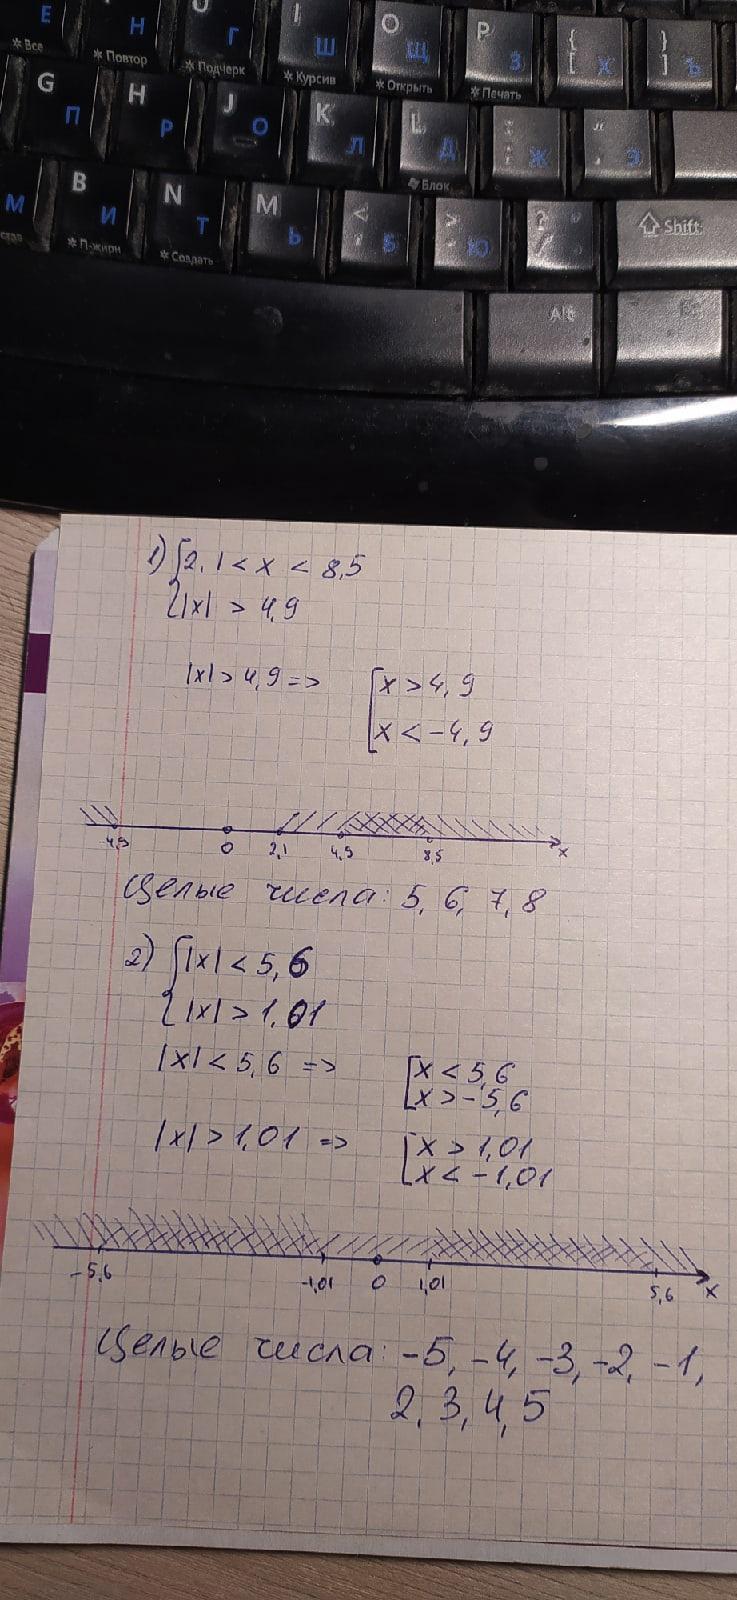 E У Н U Г I Ш O Щ P З { [ Х } ] Ъ
* Все * Повтор * Подчерк * Курсив * Открыть * Печать
G П H Р J О K Л L Д Ж Э
Блок
М B И N Т M Ь < Б > Ю ? / Shift
* П-жирн * Создать
Alt
1) { 2,1 < x < 8,5
|x| > 4,9
|x| > 4,9 => [ x > 4,9
x < -4,9
4,9 0 2,1 4,9 8,5 x
Целые числа: 5, 6, 7, 8
2) { |x| < 5,6
|x| > 1,01
|x| < 5,6 => [ x < 5,6
x > -5,6
|x| > 1,01 => [ x > 1,01
x < -1,01
-5,6 -1,01 0 1,01 5,6 x
Целые числа: -5, -4, -3, -2, -1,
2, 3, 4, 5